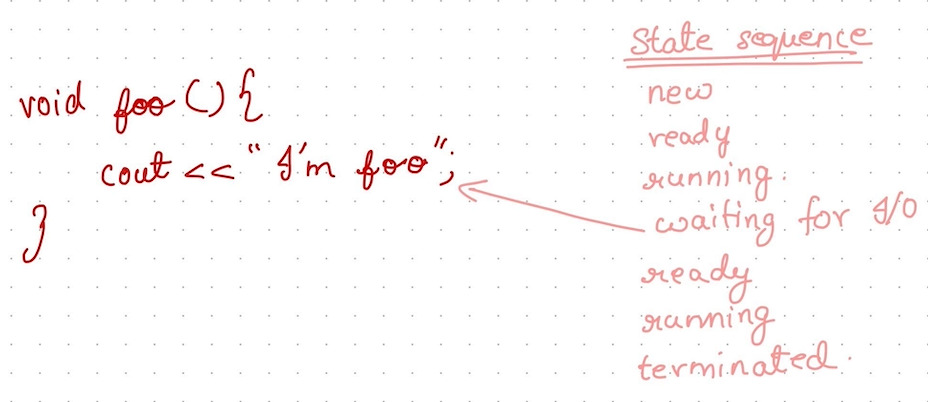 void foo () {
cout << "I'm foo";
}
State sequence
new
ready
running.
waiting for I/O
ready
running
terminated.